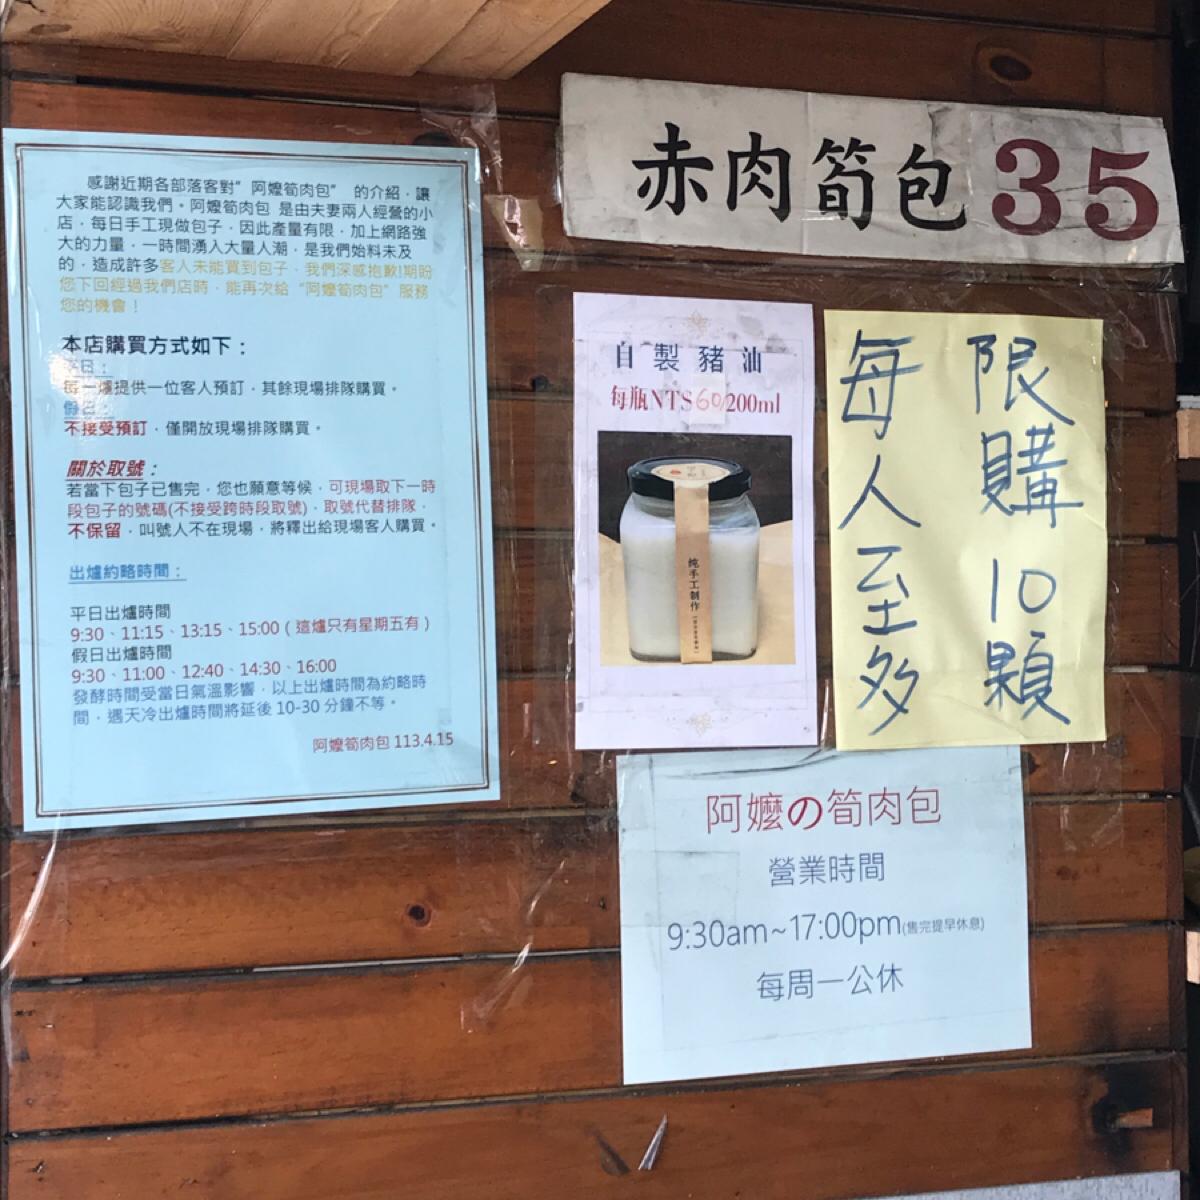 感謝近期各部落客對"阿嬤筍肉包" 的介紹，讓
大家能認識我們。阿嬤筍肉包 是由夫妻兩人經營的小
店，每日手工現做包子，因此產量有限，加上網路強
大的力量，一時間湧入大量人潮，是我們始料未及
的，造成許多客人未能買到包子，我們深感抱歉!期盼
您下回經過我們店時，能再次給"阿嬤筍肉包"服務
您的機會！
本店購買方式如下：
平日：
每一爐提供一位客人預訂，其餘現場排隊購買。
假日：
不接受預訂，僅開放現場排隊購買。
關於取號：
若當下包子已售完，您也願意等候，可現場取下一時
段包子的號碼(不接受跨時段取號)，取號代替排隊，
不保留，叫號人不在現場，將釋出給現場客人購買。
出爐約略時間：
平日出爐時間
9:30、11:15、13:15、15:00（這爐只有星期五有）
假日出爐時間
9:30、11:00、12:40、14:30、16:00
發酵時間受當日氣溫影響，以上出爐時間為約略時
間，遇天冷出爐時間將延後 10-30 分鐘不等。
阿嬤筍肉包 113.4.15
赤肉筍包35
自製豬油
每瓶NT$60/200ml
純手工制作
限購10顆
每人至多
阿嬤の筍肉包
營業時間
9:30am~17:00pm(售完提早休息)
每周一公休